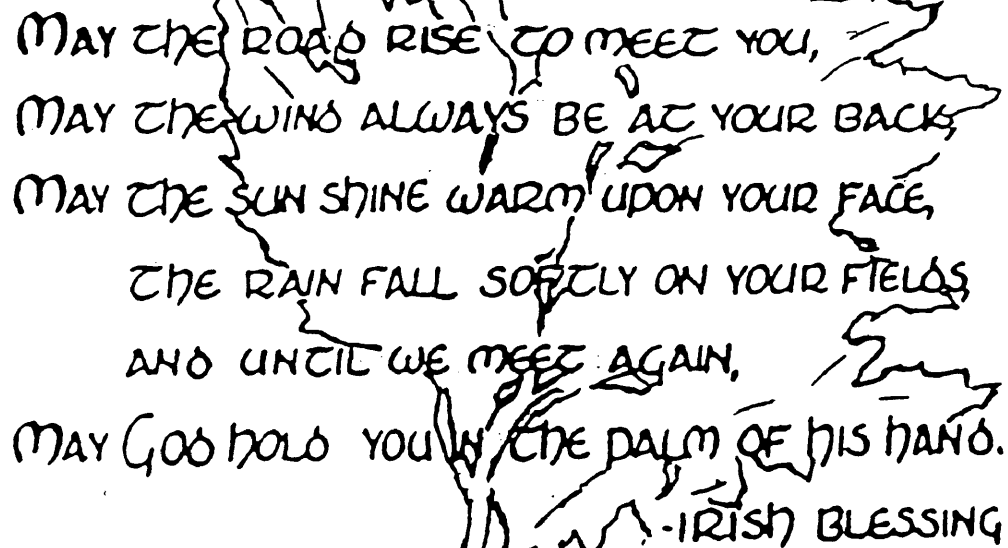 May the road rise to meet you,
May the wind always be at your back,
May the sun shine warm upon your face,
the rain fall softly on your fields,
and until we meet again,
May God hold you in the palm of his hand.
-Irish Blessing